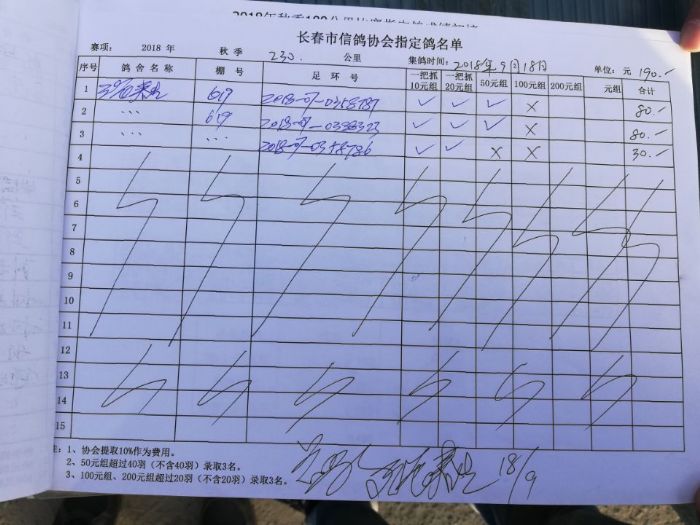 长春市信鸽协会指定鸽名单
赛项: 2018 年 秋 季 230. 公里 集鸽时间: 2018年9月18日 单位: 元 190.-
序号 鸽 舍 名 称 棚 号 足 环 号 一把抓10元组 一把抓20元组 50元组 100元组 200元组 元组 合计
1 619 2018-07-0358787 ✓ ✓ ✓ × 80.-
2 619 ✓ ✓ ✓ × 80.-
3 2018-07-0358786 ✓ ✓ × × 30.-
4
5
6
7
8
9
10
11
12
13
14
15
注: 1、协会提取10%作为费用。
2、50元组超过40羽（不含40羽）录取3名。
3、100元组、200元组超过20羽（不含20羽）录取3名。
18/9